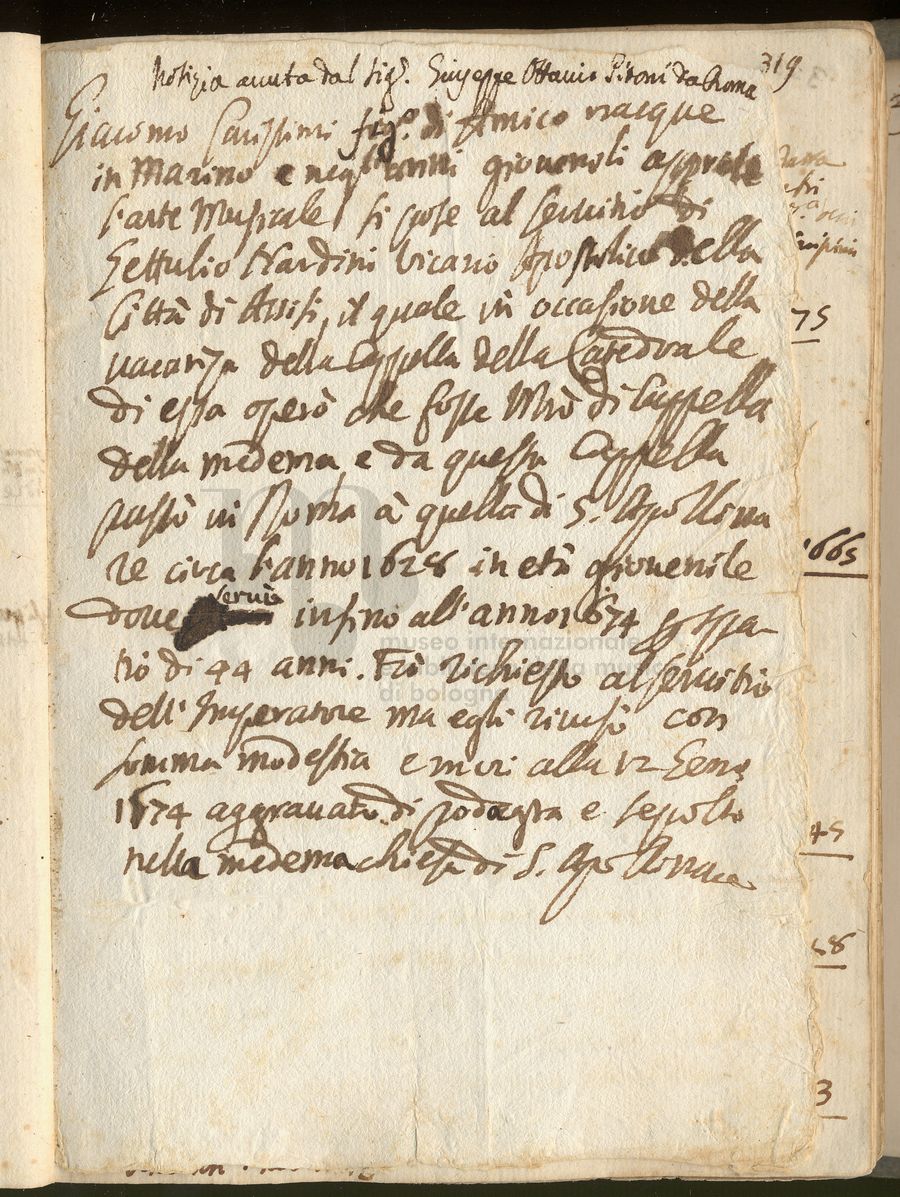 319
Notizia auuta dal sigr. Giuseppe Ottauio Pitoni da Roma
Giacomo Carissimi figo. di Amico nacque
in Marino e negl'anni giouenoli apprese
l'arte Musicale si pose al seruitio di
Gettulio Nardini Vicario Apostolico della
Città di Assisi, il quale in occasione della
uacanza della Cappella della Catedrale
di essa operò che fosse Mrò di Cappella
della medema, e da questa Cappella
passò in Roma à quella di S. Apollina
re circa l'anno 1628 in età giouenile
doue seruì infino all'anno 1674 p spa-
tio di 44 anni. Fù richiesto al seruitio
dell'Imperatore ma egli ricusò con
somma modestia e morì alla 12 Geno
1674 aggrauato di podagra e sepolto
nella medema chiesa di S. Apollinare
75
1665
45
68
3
museo internazionale
e biblioteca della musica
di bologna